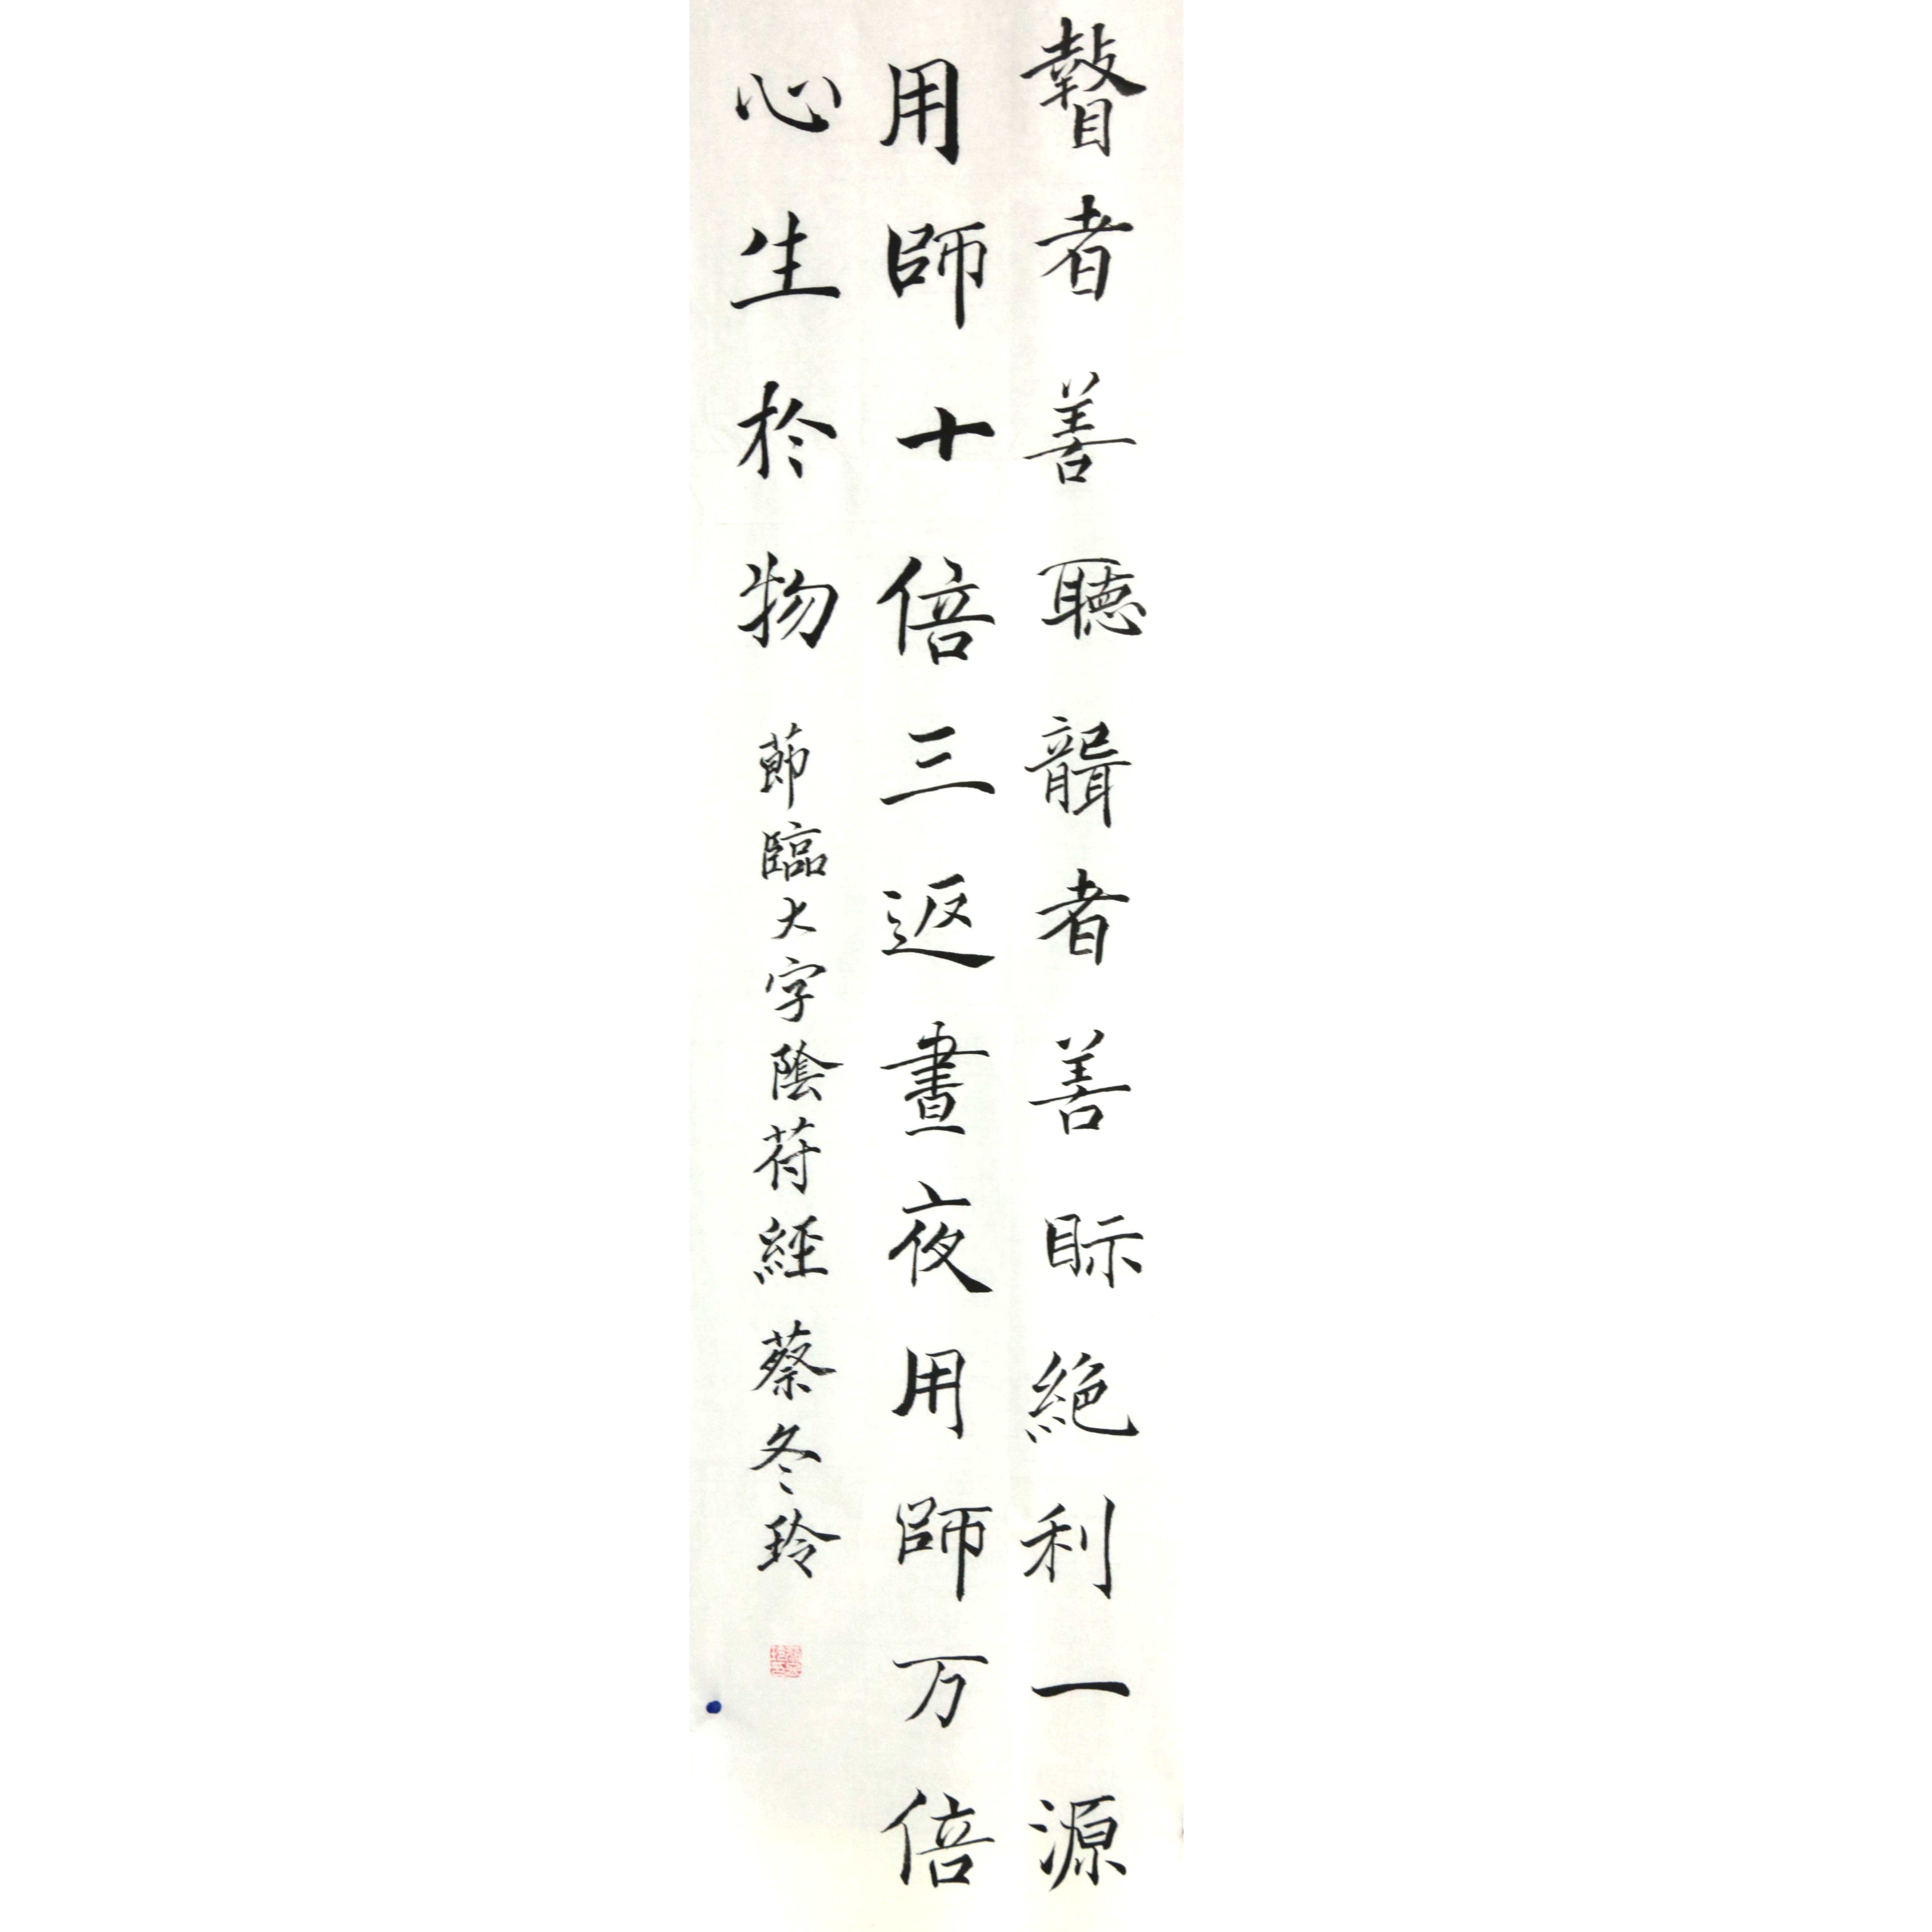 瞽者善聴聾者善眎絶利一源
用師十倍三返晝夜用師万倍
心生於物
莭臨大字陰苻經蔡冬玲